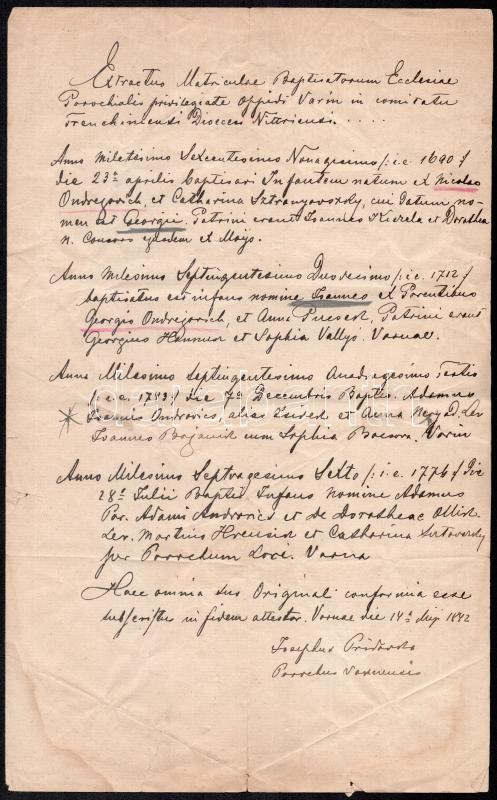 Extractus Matriculae Baptisatorum Ecclesiae
Parochialis privilegiate oppidi Varin in comitatu
Trenchiniensi Dioecesis Nittriensi . . . .
Anno Miletsimo Sexcentesimo Nonagesimo /: i. e. 1690 :/
die 23ª aprilis baptisavi Infantem natum ex Nicolao
Ondrejovich, et Catharina Sztranyovszky, cui datum no-
men est Georgii, Patrini erant Ioannes et Dorothea
n. Consors ejusdem ex Mojs.
Anno Milesimo Septingentesimo Duodecimo /: i. e. 1712 :/
baptisatus est infans nomine Ioannes ex Parentibus
Georgio Ondrejovich, et Anna Patrini erant
Georgius et Sophia Vallys Varnae.
Anno Milesimo Septingentesimo Tertio
/: i. e. 1743 :/ die 7ª Decembris Baptis. Adamus
Ioannis Androvics, alias et Anna Lev.
Ioannes cum Sophia Varin
Anno Milesimo Septuagesimo Sexto /: i. e. 1776 :/ Die
28ª Iulii Baptis Infans nomine Adamus
Par. Adami Androvics et de Dorotheae
Lev. Martinus et Catharina
per Parochum Loci. Varna
Haec omnia sus Original conformia esse
subscriptus in fidem attestor. Varnae die 14ª Maji 1842
Iosephus
Parochus Varinensis